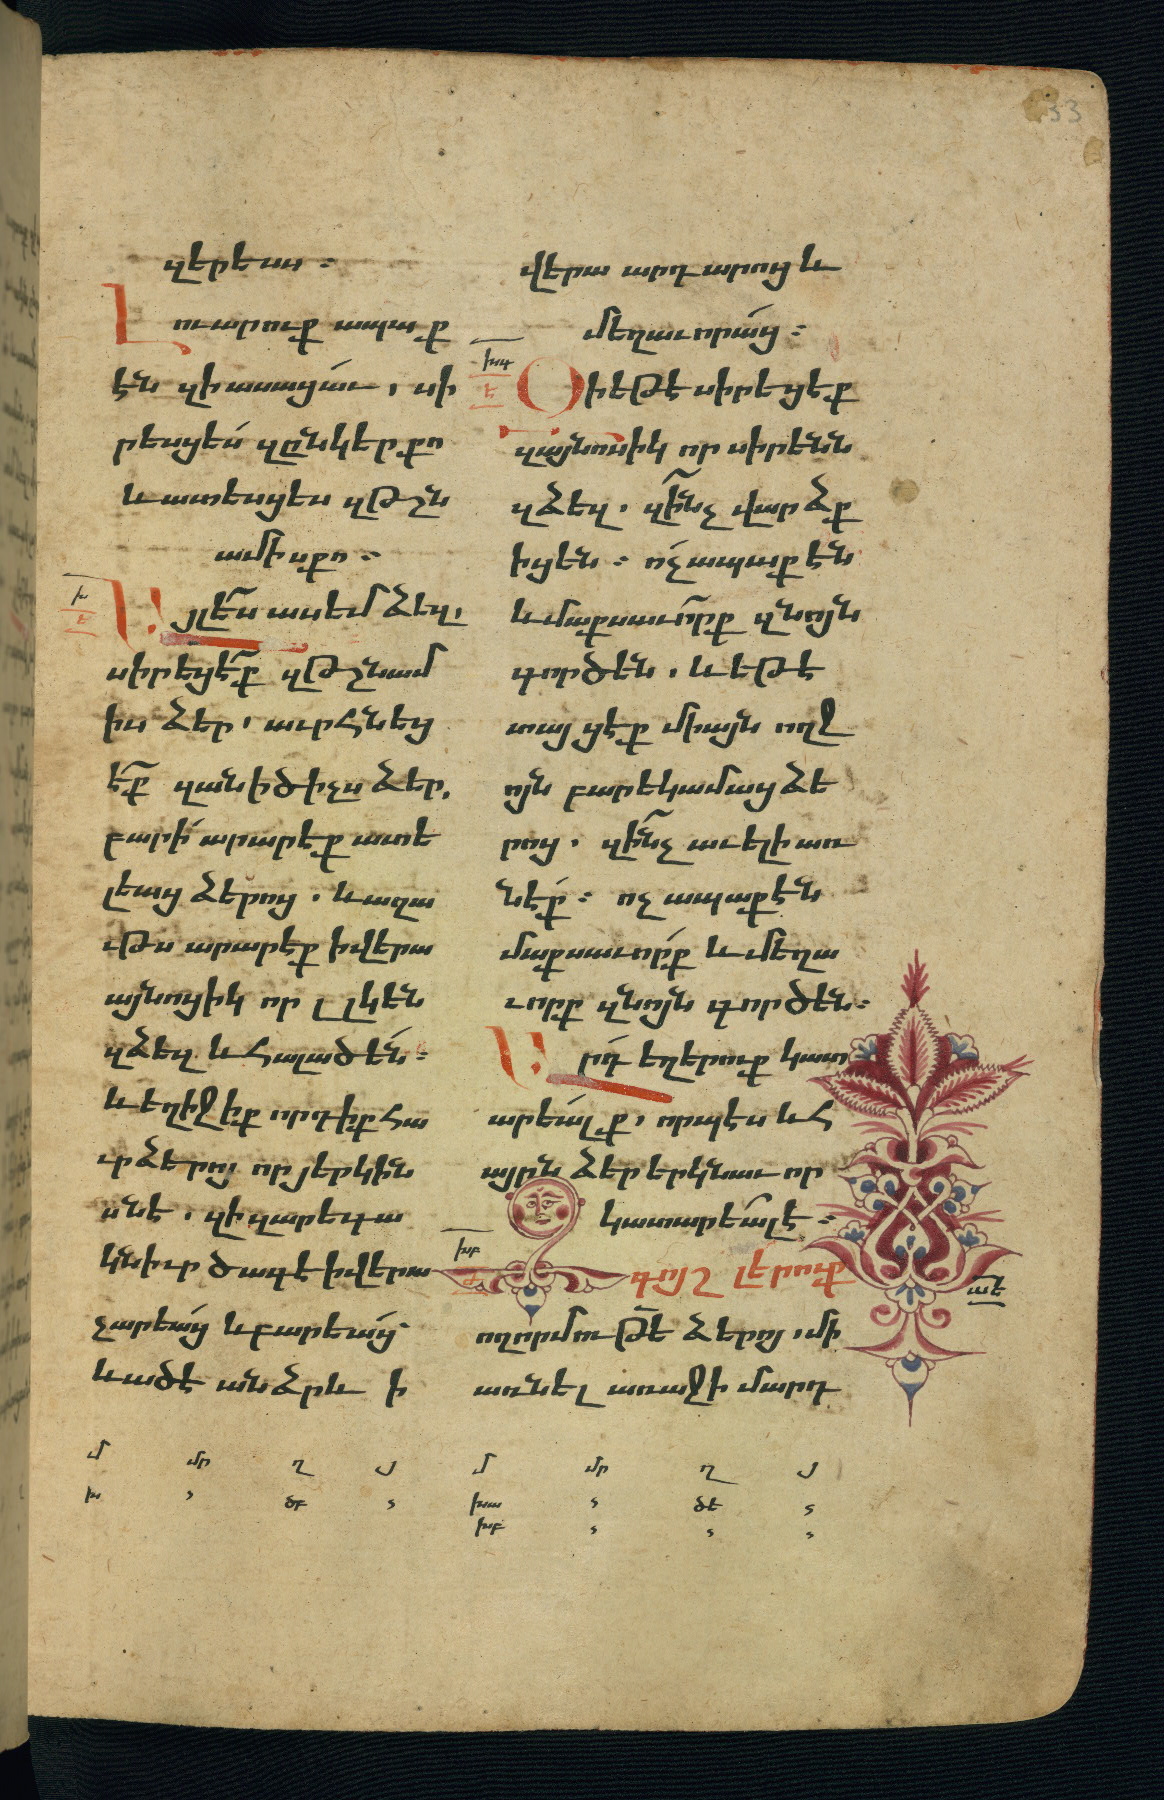 33
զերեսս ։
Լուարուք ապա ք
էն զի ասացաւ , սի
րեսցես զընկեր քո
և ատեսցես զթշն
ամի ս քո ։
խ
Ե
Այլ ես ասեմ ձեզ,
սիրեցէք զթշնամ
իս ձեր, աւրհնեց
էք զանիծիչս ձեր,
բարի արարէք ատե
լեաց ձերոց . և աղա
ւթս արարէք ի վերա
այնոցիկ որ լլկեն
զձեզ և հալածեն ։
և եղիջիք որդիք հա
ւր ձերոյ որ յերկին
սնե . զի զարեգա
կն իւր ծագէ ի վերա
չարեաց և բարեաց
և ածէ անձրև ի
վերա արդարոց և
մեղաւորաց ։
խա
Ե
Օի եթէ սիրեցէք
զայնոսիկ որ սիրենն
զձեզ . զինչ վարձք
իցեն ։ ոչ ապաքէն
և մաքսաւորք զնոյն
գործեն . և եթէ
տայցէք միայն ողջ
ոյն բարեկամաց ձե
րոց . զինչ աւելի առ
նէք ։ ոչ ապաքէն
մաքսաւորք և մեղա
ւորք զնոյն գործեն ։
Արդ եղերուք կատ
արեալ ք, որպէս և հ
այրն ձեր երկնաւ որ
կատարեալ է ։
խբ
գոյշ լերուք
ողորմութե ձերոյ , մի
առնել առաջի մարդ
աե
մ մր ղ յ
խ ծբ
մ մր ղ յ
խա ծէ
խբ